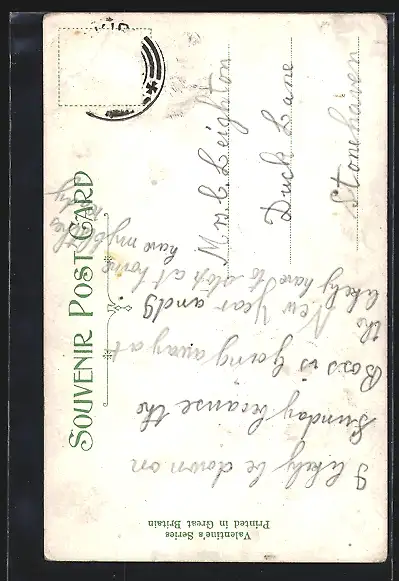 SOUVENIR POST CARD
Valentine's Series
Printed in Great Britain
I likely be down on
Sunday because the
Boss is going away at
the New Year and I
likely have to stop at home
have my
Mrs C Leighton
Duck Lane
Stonehaven